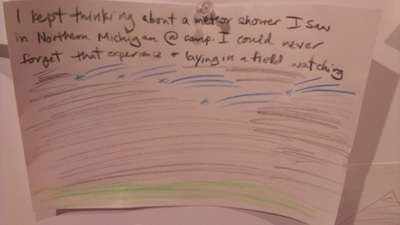 I kept thinking about a meteor shower I saw
in Northern Michigan @ camp. I could never
forget that experience + laying in a field watching